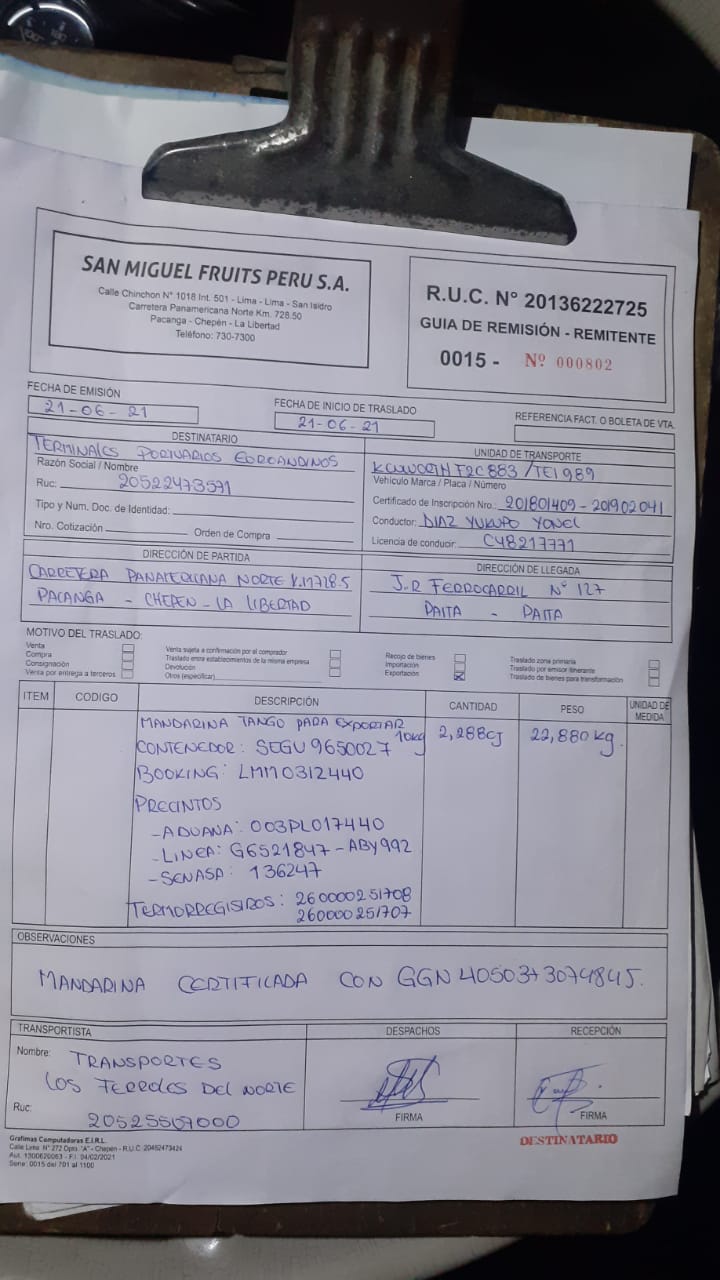 SAN MIGUEL FRUITS PERU S.A.
Calle Chinchon N° 1018 Int. 501 - Lima - Lima - San Isidro
Carretera Panamericana Norte Km. 728.50
Pacanga - Chepén - La Libertad
Teléfono: 730-7300
R.U.C. N° 20136222725
GUIA DE REMISIÓN - REMITENTE
0015 - Nº 000802
FECHA DE EMISIÓN
21-06-21
FECHA DE INICIO DE TRASLADO
21-06-21
REFERENCIA FACT. O BOLETA DE VTA.
DESTINATARIO
TERMINALES PORTUARIOS EUROANDINOS
Razón Social / Nombre
Ruc: 20522473571
Tipo y Num. Doc. de Identidad:
Nro. Cotización Orden de Compra
UNIDAD DE TRANSPORTE
KENWORTH T2C 883 / TEI 989
Vehículo Marca / Placa / Número
Certificado de Inscripción Nro.: 201801409 - 201902041
Conductor: DIAZ YONEL
Licencia de conducir: C48217771
DIRECCIÓN DE PARTIDA
CARRETERA PANAMERICANA NORTE K.M 728.5
PACANGA - CHEPEN - LA LIBERTAD
DIRECCIÓN DE LLEGADA
J.R FERROCARRIL N° 127
PAITA - PAITA
MOTIVO DEL TRASLADO:
Venta
Compra
Consignación
Venta por entrega a terceros
Venta sujeta a confirmación por el comprador
Traslado entre establecimientos de la misma empresa
Devolución
Otros (especificar)
Recojo de bienes
Importación
Exportación
Traslado zona primaria
Traslado por emisor itinerante
Traslado de bienes para transformación
ITEM CODIGO DESCRIPCIÓN CANTIDAD PESO UNIDAD DE MEDIDA
MANDARINA TANGO PARA EXPORTAR 10kg 2,288CJ 22,880 kg.
CONTENEDOR: SEGU 9650027
BOOKING: LMM0312440
PRECINTOS
- ADUANA: 003PL017440
- LINEA: G6521847 - ABY992
- SENASA: 136247
TERMORREGISTROS: 260000251708
260000251707
OBSERVACIONES
MANDARINA CERTIFICADA CON GGN 4050373074845.
TRANSPORTISTA
Nombre: TRANSPORTES
LOS FERROLES DEL NORTE
Ruc: 20525567000
DESPACHOS
FIRMA
RECEPCIÓN
FIRMA
Grafimas Computadoras E.I.R.L.
Calle Lima N° 272 Dpto. "A" - Chepén - R.U.C. 20482473424
Aut. 1300620083 - F.I. 04/02/2021
Serie: 0015 del 701 al 1100
DESTINATARIO